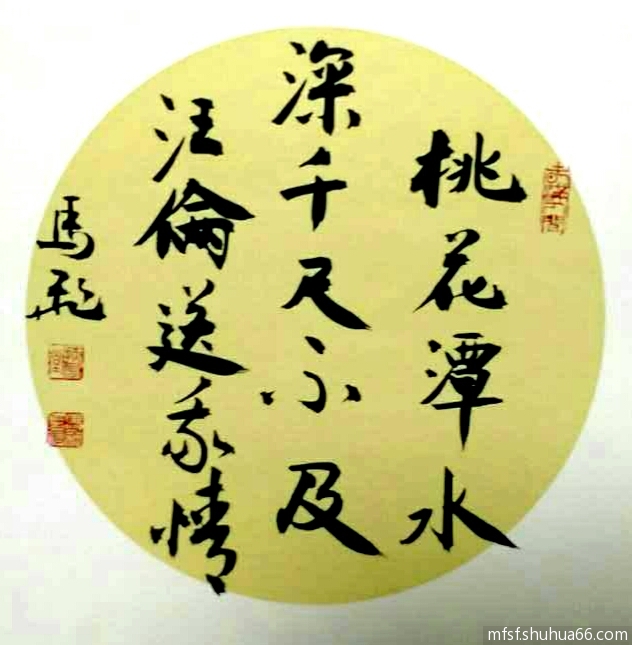 桃花潭水
深千尺不及
汪倫送我情
mfsf.shuhua66.com